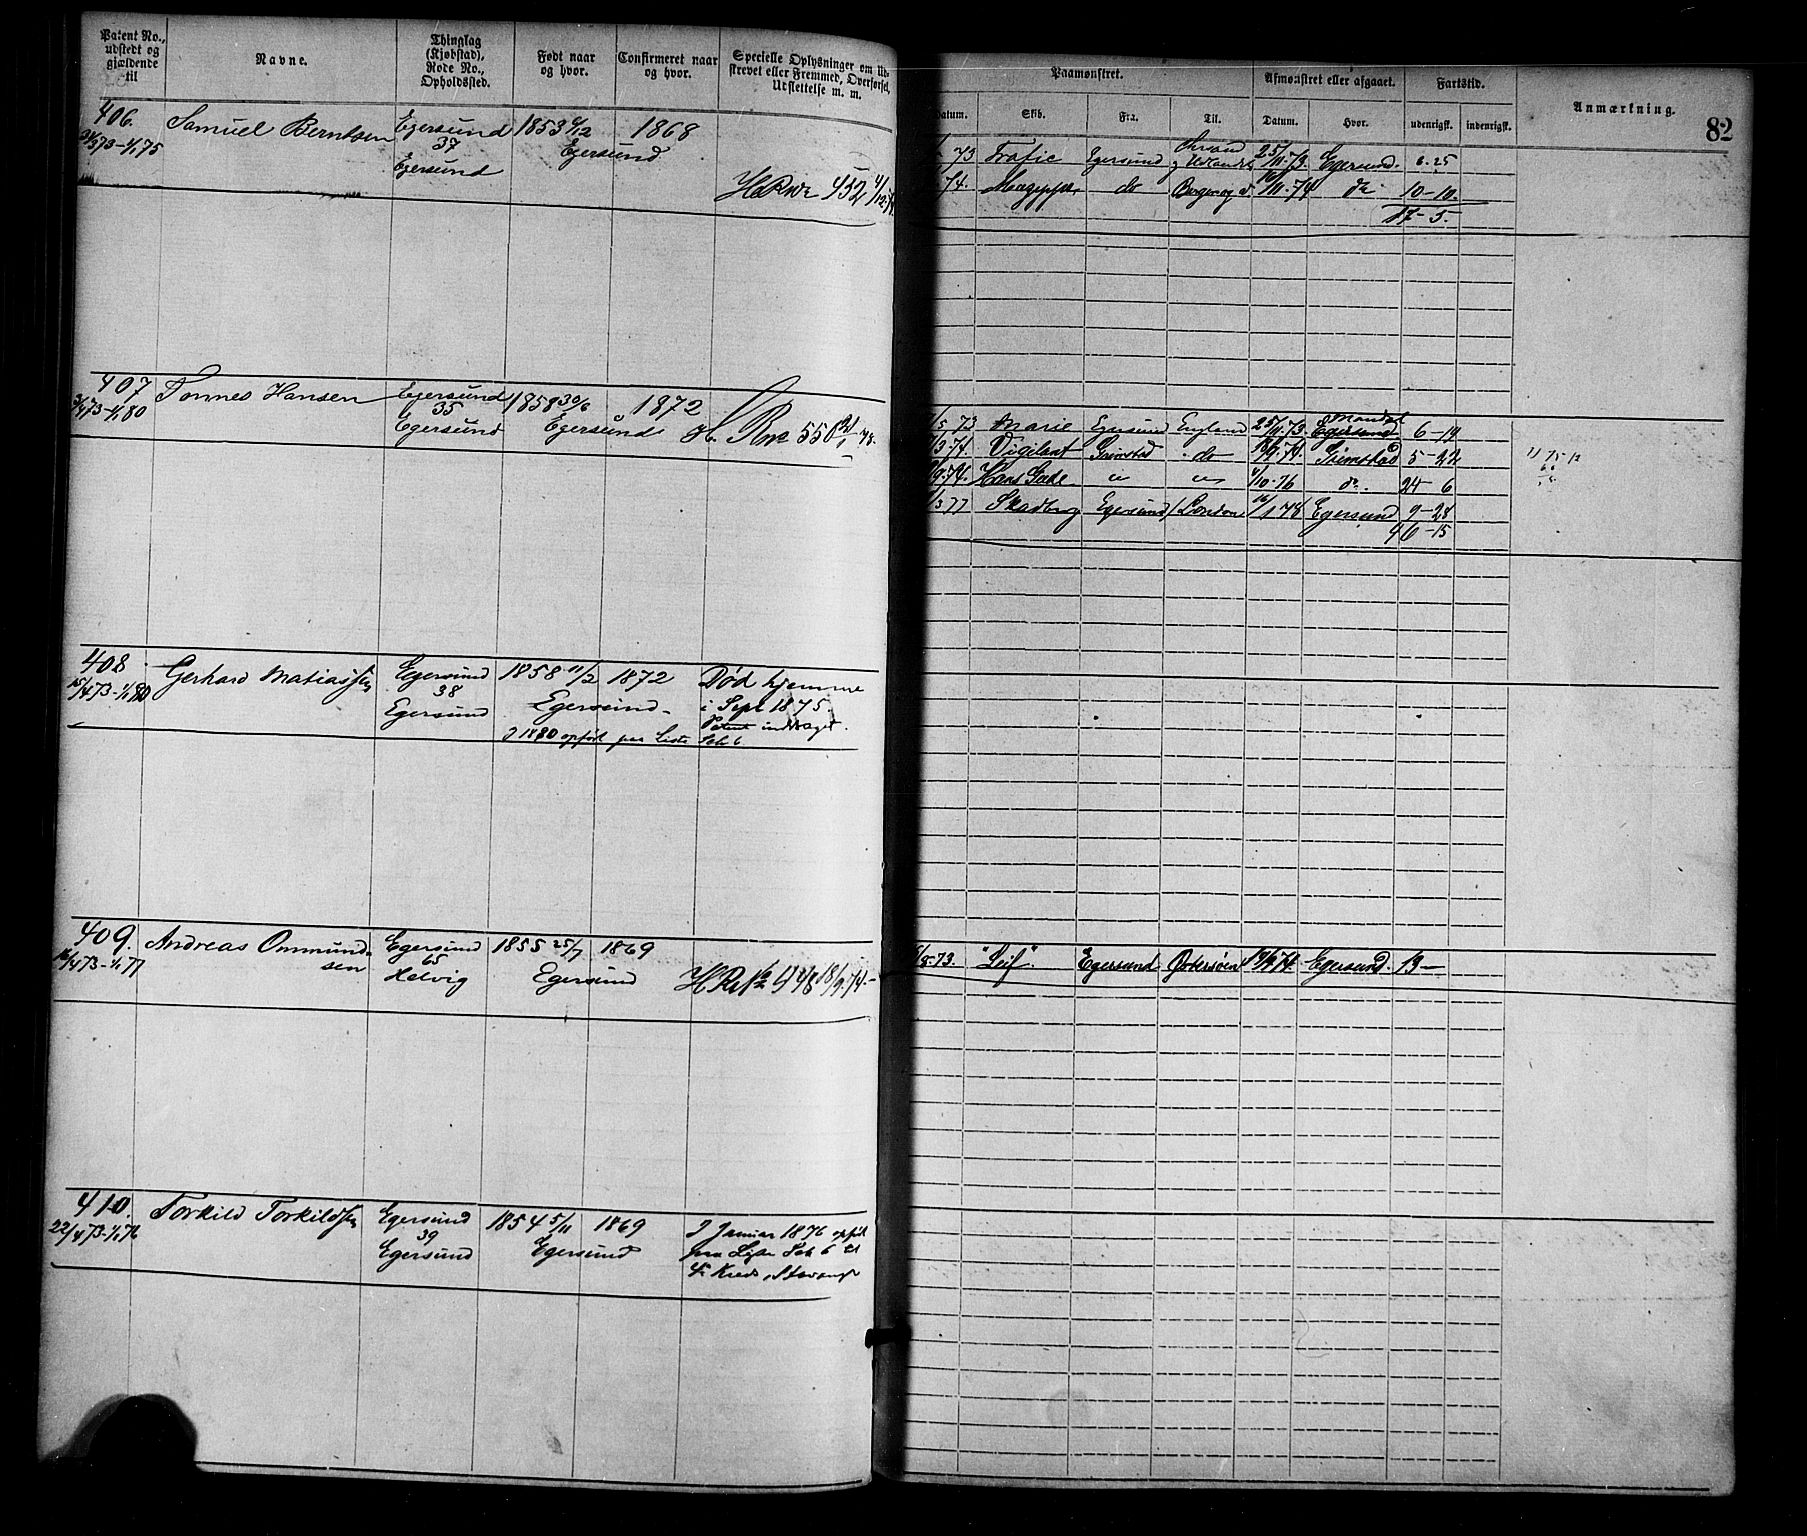 Patent No.,
udstedt og
gjældende
til
Navne.
Thinglag
(Kjøbstad),
Rode No.,
Opholdssted.
Født naar
og hvor.
Confirmeret naar
og hvor.
Specielle Oplysninger om Ud-
skrevet eller Fremmed, Overførsel,
Udslettelse m. m.
406.
Samuel Berntsen
Egersund
37
Egersund
1853 4/12
Egersund
1868
73-1/1 75
452 4/12 74
407
Tønnes Hansen
Egersund
35
Egersund
1858 30/6
Egersund
1872
3/4 73-1/1 80
550
408.
Gerhard Matiassen
Egersund
38
Egersund
1858 11/2
Egersund.
1872
Død hjemme
i Sept 1875.
Patent inddraget.
15/4 73-1/1 80
J 1880 opført paa Liste Sch 6
409.
Andreas Ommund-
sen
Egersund
65
Helvig
1855 25/7
Egersund
1869
16/4 73-1/1 77
448 18/9 74.
410.
Torkild Torkildsen
Egersund
39
Egersund
1854 5/11
Egersund
1869
J Januar 1876 opført
paa Liste Sch 6 til
4. Kreds, Stavanger
22/4 73-1/1 76
Paamønstret.
Afmønstret eller afgaaet.
Fartstid.
Anmærkning.
82
Datum.
Skib.
Fra.
Til.
Datum.
Hvor.
udenrigsk.
indenrigsk.
73 Trafic Egersund 25/11 73. Egersund. 6-25
74. do Bergen og 10/11-74 do. 10-10.
17-5.
5 73 Marie Egersund England 25/11-73. Mandal 6-19
3-74. Vigilant Grimstad do 9-74. Grimstad 5-22
9-74. Hans Gude " " 1/10-76 do. 24-6
3 77 Skadberg Egersund London 16/1 78 Egersund 9-28
46-15
8-73. "Leif". Egersund Østersøen 74 Egersund. 13-